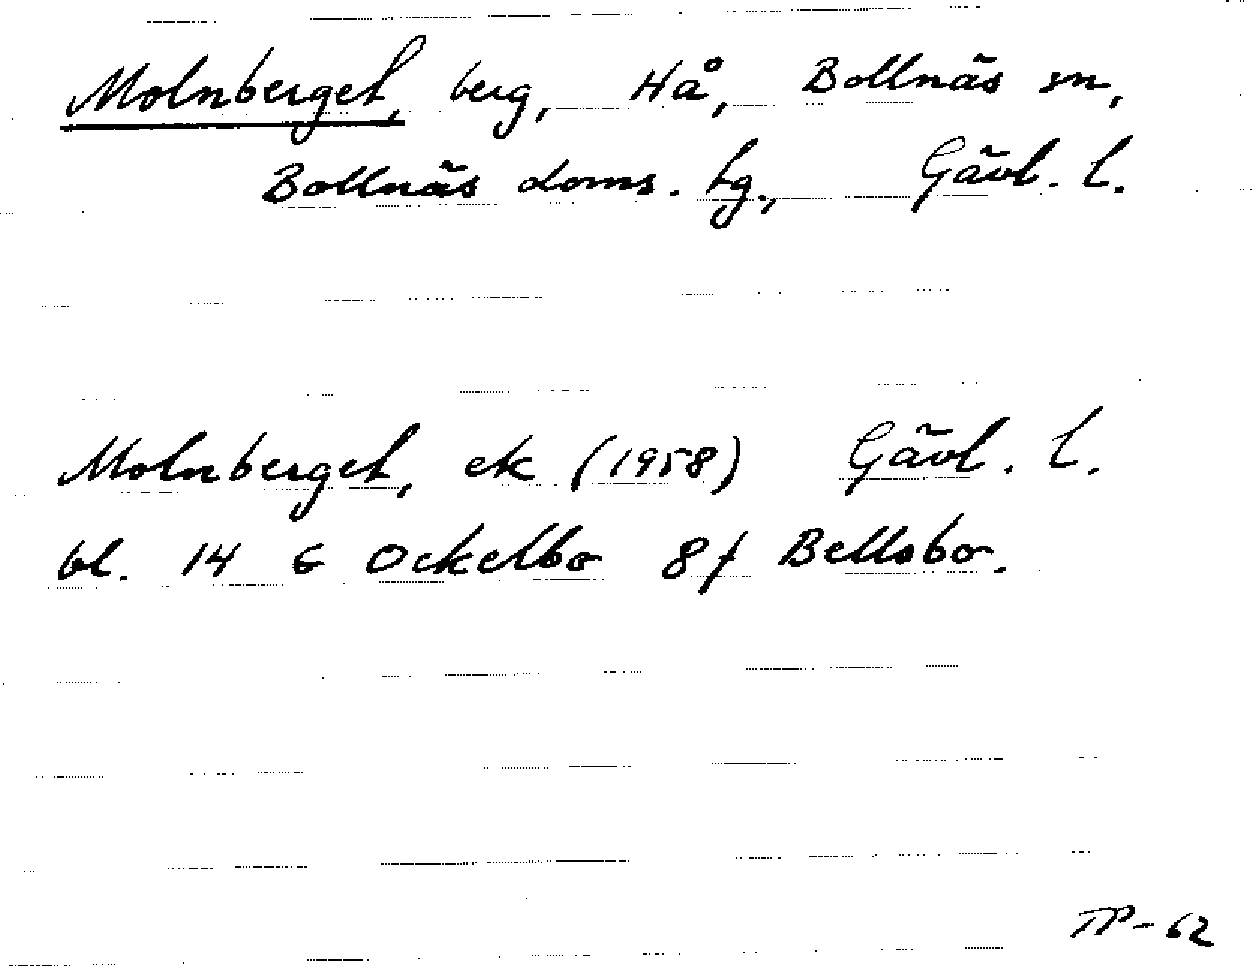 Molnberget, berg, Hå, Bollnäs sn,
Bollnäs doms. hg., Gävl. l.
Molnberget, ek (1958) Gävl. l.
bl. 14 G Ockelbo 8f Bellsbo.
TP-62